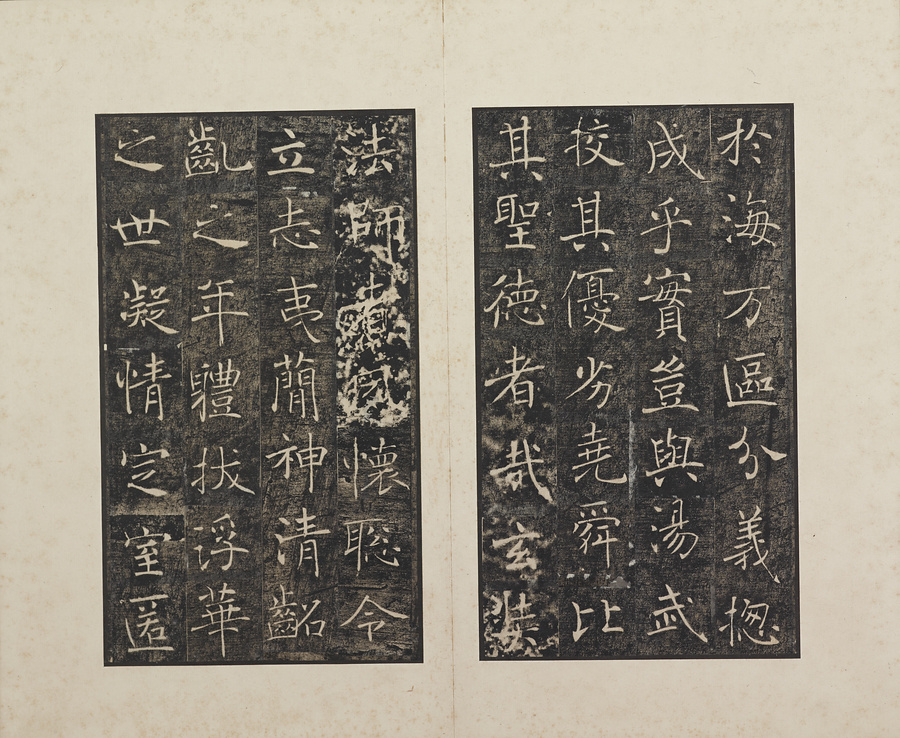 於海万區分義揔
成乎實豈與湯武
挍其優劣堯舜比
其聖徳者哉玄奘
法師者夙懷聡令
立志夷簡神清齠
齔之年體拔浮華
之世凝情定室匿